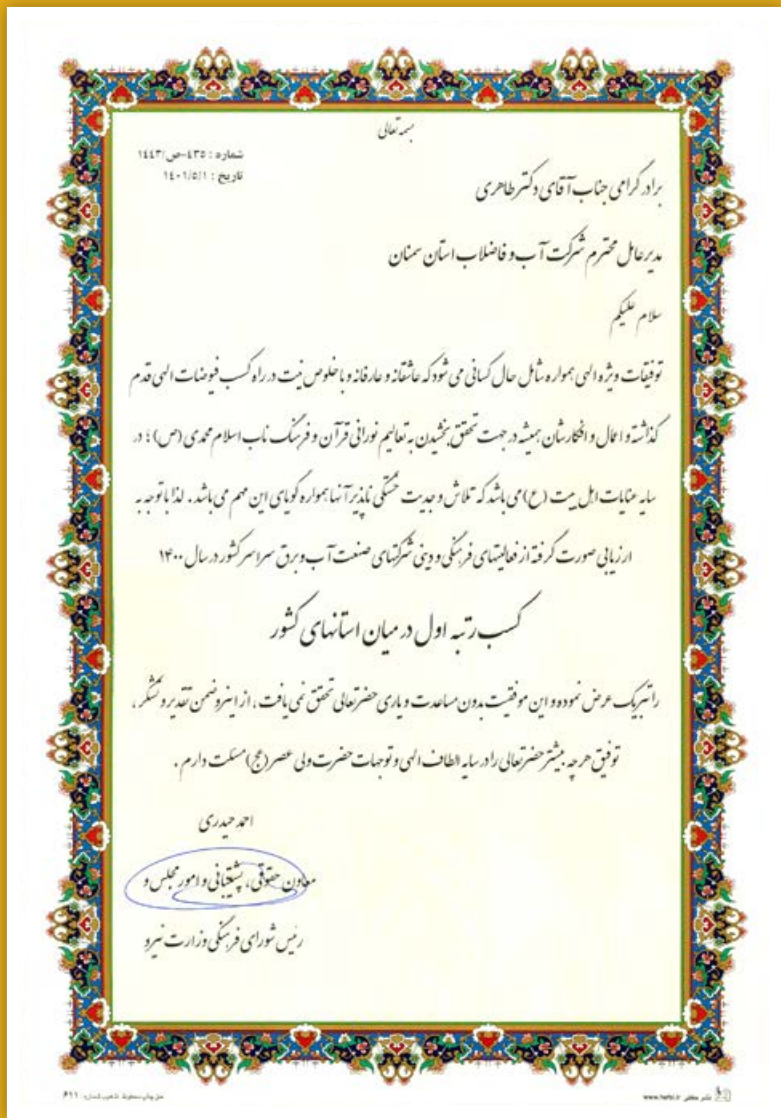 بسمه تعالی
شماره : ٤٣٥-ص/١٤٤٣
تاریخ : ١٤٠١/٥/١
برادر گرامی جناب آقای دکتر طاهری
مدیرعامل محترم شرکت آب و فاضلاب استان سمنان
سلام علیکم
توفیقات ویژه الهی همواره شامل حال کسانی می شود که عاشقانه و عارفانه و با خلوص نیت در راه کسب فیوضات الهی قدم
گذاشته و اعمال و افکارشان همیشه در جهت تحقق بخشیدن به تعالیم نورانی قرآن و فرهنگ ناب اسلام محمدی (ص) ؛ در
سایه عنایات اهل بیت (ع) می باشد که تلاش و جدیت خستگی ناپذیر آنها همواره گویای این مهم می باشد . لذا با توجه به
ارزیابی صورت گرفته از فعالیتهای فرهنگی و دینی شرکتهای صنعت آب و برق سراسر کشور در سال ۱۴۰۰
کسب رتبه اول در میان استانهای کشور
را تبریک عرض نموده و این موفقیت بدون مساعدت و یاری حضرتعالی تحقق نمی یافت ، از اینرو ضمن تقدیر و تشکر ،
توفیق هر چه بیشتر حضرتعالی را در سایه الطاف الهی و توجهات حضرت ولی عصر (عج) مسئلت دارم .
احمد حیدری
معاون حقوقی، پشتیبانی و امور مجلس و
رئیس شورای فرهنگی وزارت نیرو
www.hefzi.ir
۶۱۱